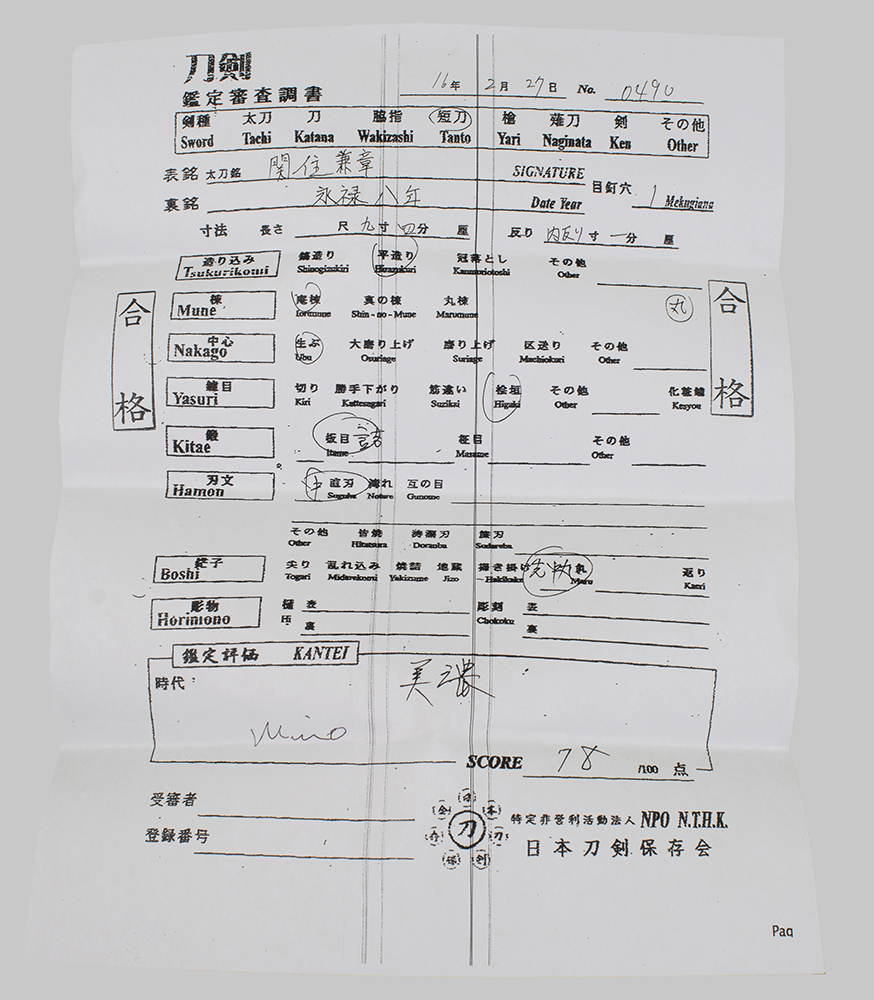 刀剣
鑑定審査調書
16年 2月 27日 No. 0490
剣種 太刀 刀 脇指 短刀 槍 薙刀 剣 その他
Sword Tachi Katana Wakizashi Tanto Yari Naginata Ken Other
表銘 太刀銘 関住兼章 SIGNATURE 目釘穴 1 Mekugiana
裏銘 永禄八年 Date Year
寸法 長さ 尺 九寸 四分 厘 反り 内反り 寸 一分 厘
造り込み 鎬造り 平造り 冠落とし その他
Tsukurikomi Shinogizukiri Hirazukuri Kanmuriotoshi Other
棟 庵棟 真の棟 丸棟 丸
Mune Iorimune Shin-no-Mune Marumune
中心 生ぶ 大磨り上げ 磨り上げ 区送り その他
Nakago Ubu Osuriage Suriage Machiokuri Other
鑢目 切り 勝手下がり 筋違い 桧垣 その他 化粧鑢
Yasuri Kiri Kattesagari Suzikai Higaki Other Kesyou
鍛 板目 詰 柾目 その他
Kitae Itame Masame Other
刃文 中 直刃 湾れ 互の目
Hamon Suguha Notare Gunome
その他 皆焼 涛瀾刃 簾刃
Other Hitatsura Doranba Sudareba
鋩子 尖り 乱れ込み 焼詰 地蔵 掃き掛け 先 丸 返り
Boshi Togari Midarekomi Yakizume Jizo Hakikake Maru Kaeri
彫物 樋 表 彫刻 表
Horimono Hi 裏 Chokoku 裏
鑑定評価 KANTEI
時代：
美濃
Mino
SCORE 78 /100 点
合格
合格
受審者
登録番号
刀
日本刀剣保存会
特定非営利活動法人 NPO N.T.H.K.
日本刀剣保存会
Pag